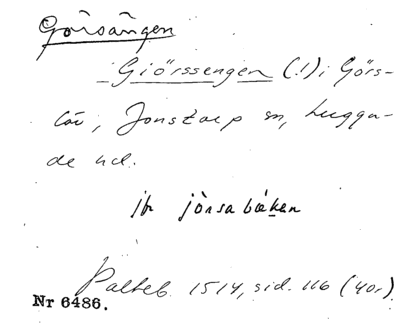 Görsängen
Giörssengen (!) i Görs-
löv, Jonstorp sn, Luggu-
de hd.
jfr jörsabäken
Palteb. 1514, sid. 116 (40r)
Nr 6486.